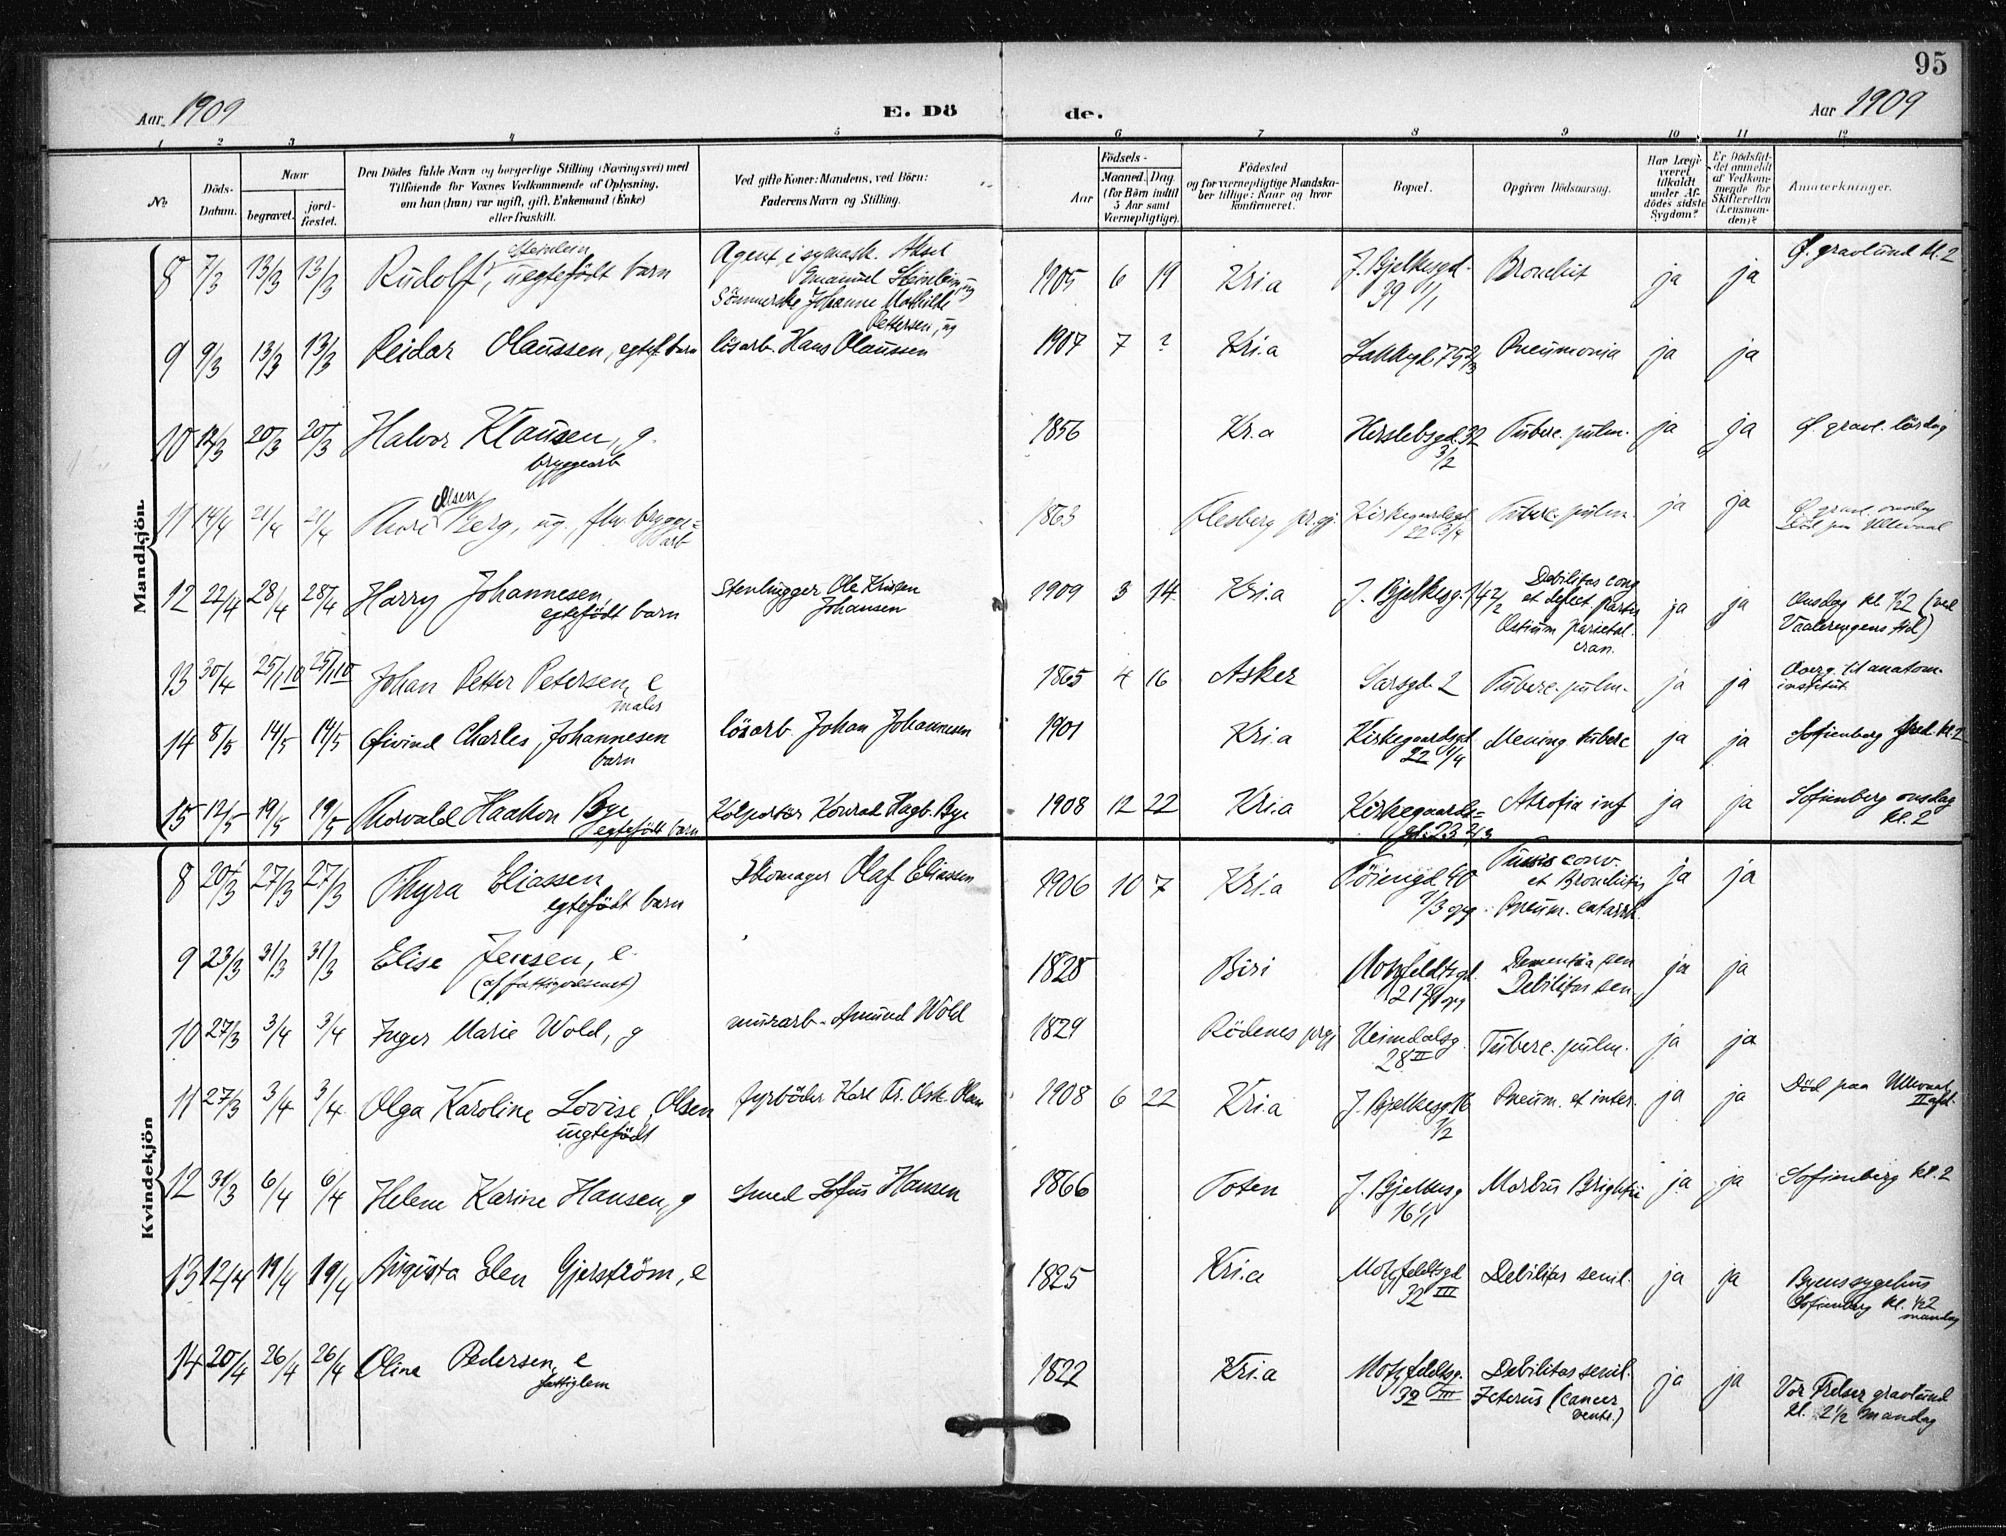 95
Aar 1909 E. Dö de. Aar 1909
1 2 3 4 5 6 7 8 9 10 11 12
№
Döds-
Datum.
Naar
begravet.
jord-
fæstet.
Den Dödes fulde Navn og borgerlige Stilling (Næringsvei) med
Tilföiende for Voxnes Vedkommende af Oplysning,
om han (hun) var ugift, gift, Enkemand (Enke)
eller fraskilt.
Ved gifte Koner: Mandens, ved Börn:
Faderens Navn og Stilling.
Födsels-
Aar
Maaned. Dag
(for Börn indtil
5 Aar samt
Værnepligtige).
Födested
og for værnepligtige Mandska-
ber tillige: Naar og hvor
konfirmeret.
Bopæl.
Opgiven Dödsaarsag.
Har Læge
været
tilkaldt
under Af-
dödes sidste
Sygdom?
Er Dödsfal-
det anmeldt
af Vedkom-
mende for
Skifteretten
(Lensman-
den)?
Anmerkninger.
Mandkjön.
8 7/3 13/3 13/3 Rudolf, uegtefödt barn
Agent i symask. Aksel
Emanuel Steinlein, ug
Sömmerske Johanne Mathilde
Pettersen, ug
1905 6 19 Kri.a J. Bjelkesgd.
39 1/1
Bronchit ja ja Ø. gravlund kl. 2
9 9/3 13/3 13/3 Reidar Olaussen, egtef. barn lösarb. Hans Olaussen 1907 7 ? Kri.a Lakkegd. 75 2/3 Pneumonia ja ja
10 14/3 20/3 20/3 Halvor Klausen, g.
bryggearb
1856 Kr.a Herslebsgd. 32
3/2
Tuberc. pulm. ja ja Ø. gravl. lördag
11 14/4 21/4 21/4 Thore Olsen Berg, ug., flv. brygge=
arb
1863 Flesberg pr.gj. Kirkegaardsgd
22 3/4
Tuberc. pulm. ja ja Ø. gravl. onsdag
Död paa Ullevaal
12 22/4 28/4 28/4 Harry Johannesen,
egtefödt barn
Stenhugger Ole Kristian
Johansen
1909 3 14 Kri.a J. Bjelkesg. 14 2/2
Debilitas cong
et defect. partis
Ostium parietal.
cran.
ja ja Onsdag kl 1/2 2 (ved
Vaalerengens kkl)
13 30/4 25/1 10 25/1 10 Johan Petter Petersen, e
maler
1865 4 16 Asker Sarsgd. 2 Tuberc. pulm. ja ja Overg. til anatom.
institut.
14 8/5 14/5 14/5 Øivind Charles Johannesen
barn
lösarb. Johan Johannesen 1901 Kri.a Kirkegaardsgd
22 1/4
Mening tuberc ja ja Sofienberg fred. kl. 2
15 12/5 19/5 19/5 Thorvald Haakon Bye
egtefödt barn
Kolportör Konrad Hagb. Bye 1908 12 22 Kri.a Kirkegaards=
gd. 23 2/3
Atrofia inf ja ja Sofienberg onsdag
kl. 2
Kvindekjön
8 20/3 27/3 27/3 Thyra Eliassen
egtefödt barn
Skomager Olaf Eliassen 1906 10 7 Kri.a Töiengd 40
1/3 opg
Tussis conv.
et Bronchitis
Pneum. catarrh.
ja ja
9 23/3 31/3 31/3 Elise Jensen, e.
(af fattigvæsenet)
1828 Biri Motzfeldtsgd.
Dementia sen
Debilitas sen.
ja ja
10 27/3 3/4 3/4 Inger Marie Wold, g murarb. Amund Wold 1829 Rödenes prgj Heimdalsg.
28 II
Tuberc. pulm. ja ja
11 27/3 3/4 3/4 Olga Karoline Lovise Olsen
uegtefödt
fyrböder Karl Kr. Osk. Olsen 1908 6 22 Kri.a J. Bjelkesg. 16
1/2
Pneum. et inter. ja ja Död paa Ullevaal
II afd.
12 31/3 6/4 6/4 Helene Karine Hansen, g Smed Sofus Hansen 1866 Toten J. Bjelkesg
16 1/1
Morbus Brightii ja ja Sofienberg kl. 2
13 12/4 19/4 19/4 Augusta Elen Gjerström, e 1825 Kri.a Motzfeldtsgd
32 III
Debilitas senil. ja ja Byens sygehus
Sofienberg kl. 1/2 2
mandag
14 20/4 26/4 26/4 Oline Pedersen, e
fattiglem
1822 Kri.a Motzfeldtsg.
32 III
Debilitas senil.
Icterus (cancer
ventr.)
ja ja Vor Frelser gravlund
kl. 2 1/2 mandag